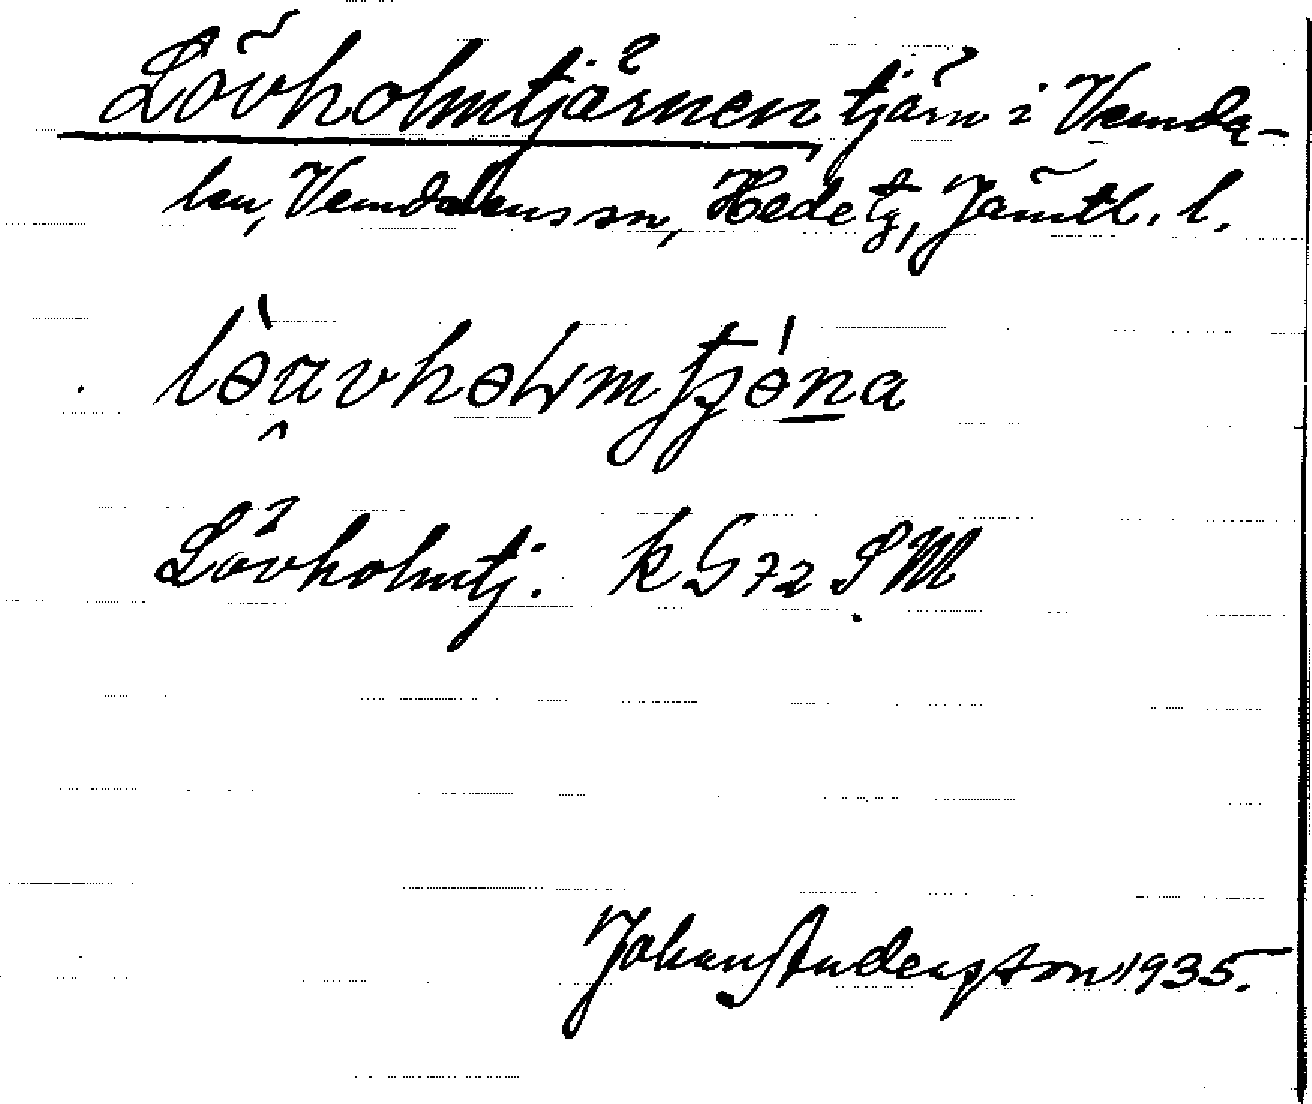 Lövholmtjärnen, tjärn i Vemda-
len, Vemdalens sn, Hede tg, Jämtl. l.
Lövholmtj. k G 72 SM
Johan Anderson 1935.